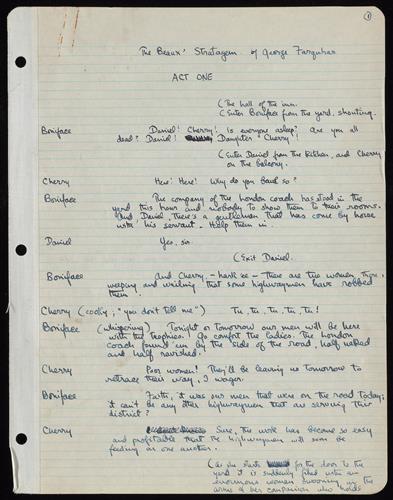 1
The Beaux' Stratagem of George Farquhar
ACT ONE
(The hall of the inn.
(Enter Boniface from the yard, shouting.
Boniface Daniel! Cherry! Is everyone asleep? Are you all
dead? Daniel! Daughter Cherry!
(Enter Daniel from the kitchen, and Cherry
on the balcony.
Cherry Here! Here! Why do you bawl so?
Boniface The company of the London coach has stood in the
yard this hour and nobody to show them to their rooms.
And Daniel, there's a gentleman that has come by horse
with his servant. Help them in.
Daniel Yes, sir.
(Exit Daniel.
Boniface And Cherry, - hark'ee - there are two women there,
weeping and wailing that some highwaymen have robbed
them.
Cherry (coolly, "you don't tell me") Tu, tu, tu, tu, tu!
Boniface (whispering) Tonight or tomorrow our men will be here
with the trophies. Go comfort the ladies. The London
coach found 'em by the side of the road half naked
and half ravished.
Cherry Poor women! They'll be leaving us tomorrow to
retrace their way, I wager.
Boniface Faith, it was our men that were on the road today;
it can't be any other highwaymen that are servicing this
district?
Cherry Sure, the work has become so easy
and profitable that the highwaymen will soon be
feeding on one another.
(As she starts for the door to the
yard it is suddenly filled with an
enormous woman swooning in the
arms of her companion who holds